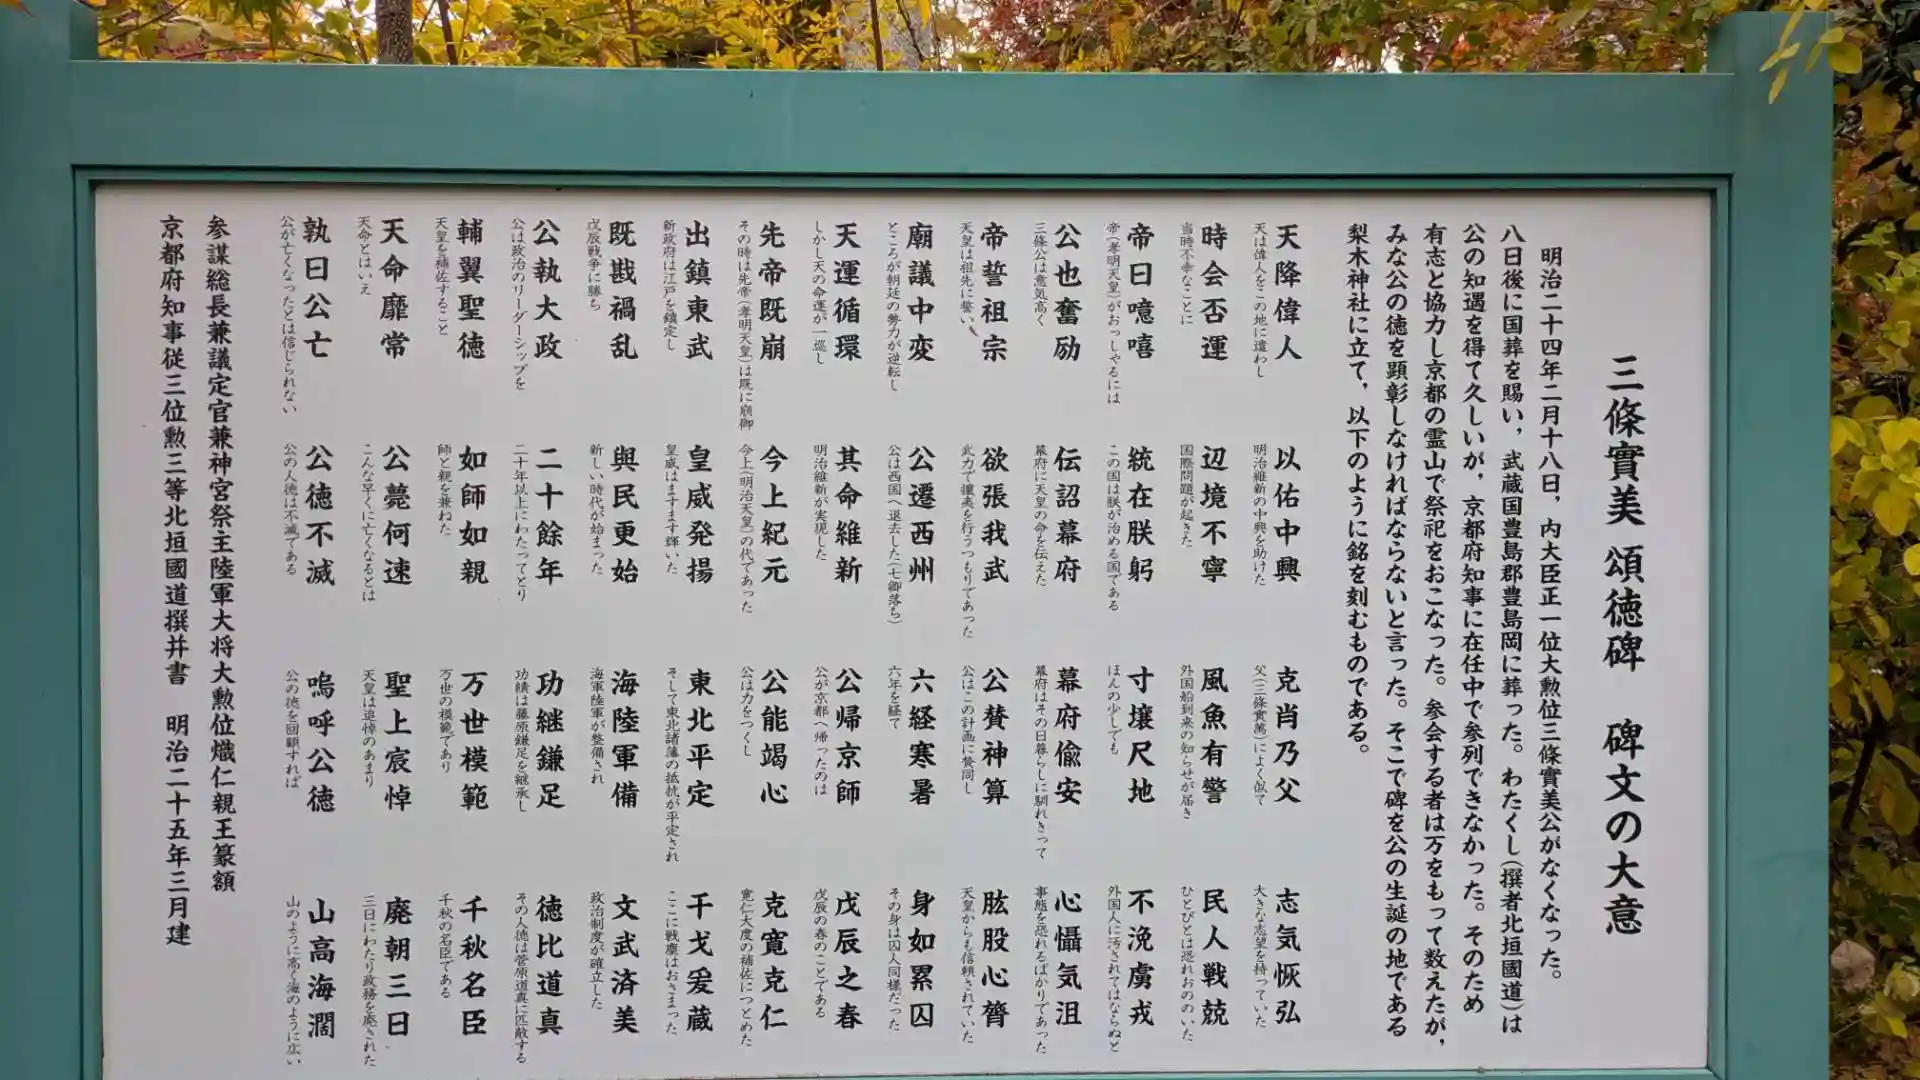 三條實美 頌徳碑 碑文の大意
明治二十四年二月十八日，内大臣正一位大勲位三條實美公がなくなった。
八日後に国葬を賜い，武蔵国豊島郡豊島岡に葬った。わたくし(撰者北垣國道)は
公の知遇を得て久しいが，京都府知事に在任中で参列できなかった。そのため
有志と協力し京都の霊山で祭祀をおこなった。参会する者は万をもって数えたが，
みな公の徳を顕彰しなければならないと言った。そこで碑を公の生誕の地である
梨木神社に立て，以下のように銘を刻むものである。
天降偉人 以佑中興 克肖乃父 志気恢弘
天は偉人をこの地に遣わし 明治維新の中興を助けた 父(三條實萬)によく似て 大きな志望を持っていた
時会否運 辺境不寧 風魚有警 民人戦兢
当時不幸なことに 国際問題が起きた 外国船到来の知らせが届き ひとびとは恐れおののいた
帝曰噫嘻 統在朕躬 寸壌尺地 不浼虜戎
帝(孝明天皇)がおっしゃるには この国は朕が治める国である ほんの少しでも 外国人に汚されてはならぬと
公也奮励 伝詔幕府 幕府偸安 心懾気沮
三條公は意気高く 幕府に天皇の命を伝えた 幕府はその日暮らしに馴れきって 事態を恐れるばかりであった
帝誓祖宗 欲張我武 公賛神算 肱股心膂
天皇は祖先に誓い 武力で攘夷を行うつもりであった 公はこの計画に賛同し 天皇からも信頼されていた
廟議中変 公遷西州 六経寒暑 身如累囚
ところが朝廷の勢力が逆転し 公は西国へ退去した(七卿落ち) 六年を経て その身は囚人同様だった
天運循環 其命維新 公帰京師 戊辰之春
しかし天の命運が一巡し 明治維新が実現した 公が京都へ帰ったのは 戊辰の春のことである
先帝既崩 今上紀元 公能竭心 克寛克仁
その時は先帝(孝明天皇)は既に崩御 今上(明治天皇)の代であった 公は力をつくし 寛仁大度の補佐につとめた
出鎮東武 皇威発揚 東北平定 干戈爰蔵
新政府は江戸を鎮定し 皇威はますます輝いた そして東北諸藩の抵抗が平定され ここに戦塵はおさまった
既戡禍乱 與民更始 海陸軍備 文武済美
戊辰戦争に勝ち 新しい時代が始まった 海軍陸軍が整備され 政治制度が確立した
公執大政 二十餘年 功継鎌足 徳比道真
公は政治のリーダーシップを 二十年以上にわたってとり 功績は藤原鎌足を継承し その人徳は菅原道真に匹敵する
輔翼聖徳 如師如親 万世模範 千秋名臣
天皇を補佐すること 師と親を兼ねた 万世の模範であり 千秋の名臣である
天命靡常 公薨何速 聖上宸悼 廃朝三日
天命とはいえ こんな早くに亡くなるとは 天皇は追悼のあまり 三日にわたり政務を廃された
孰曰公亡 公徳不滅 嗚呼公徳 山高海濶
公が亡くなったとは信じられない 公の人徳は不滅である 公の徳を回顧すれば 山のように高く海のように広い
参謀総長兼議定官兼神宮祭主陸軍大将大勲位熾仁親王篆額
京都府知事従三位勲三等北垣國道撰并書 明治二十五年三月建